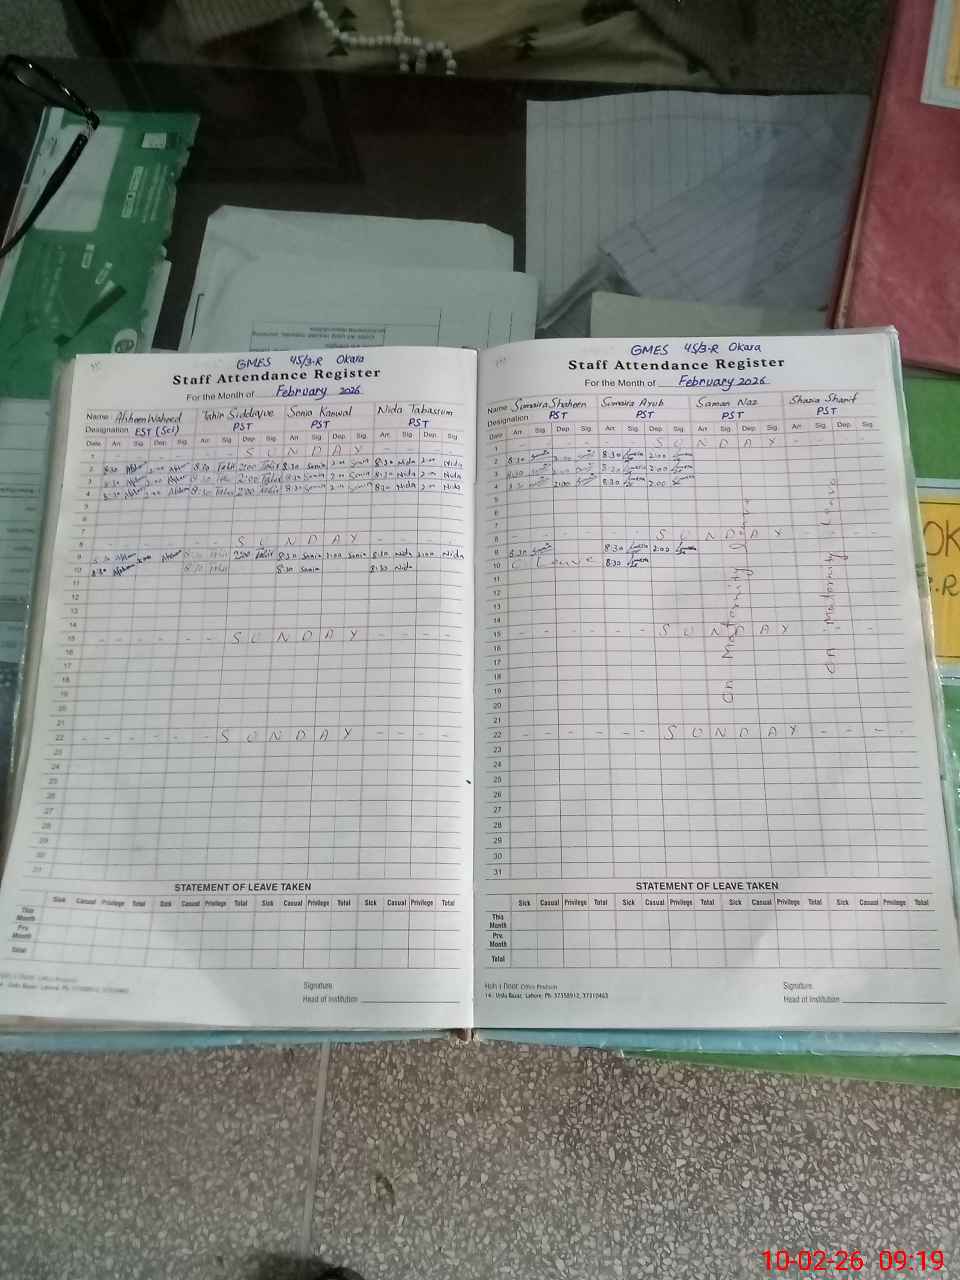 GMES 45/3-R Okara
Staff Attendance Register
For the Month of February 2026
Name Afsheen Waheed Tahir Siddique Sonia Kanwal Nida Tabassum
Designation EST (Sci) PST PST PST
Date Arr. Sig. Dep. Sig. Arr. Sig. Dep. Sig. Arr. Sig. Dep. Sig. Arr. Sig. Dep. Sig.
1 - - - - - - S U N D A Y - - - -
2 8:30 Afsheen 2:00 Afsheen 8:30 Tahir 2:00 Tahir 8:30 Sonia 2:00 Sonia 8:30 Nida 2:00 Nida
3 8:30 Afsheen 2:00 Afsheen 8:30 Tahir 2:00 Tahir 8:30 Sonia 2:00 Sonia 8:30 Nida 2:00 Nida
4 8:30 Afsheen 2:00 Afsheen 8:30 Tahir 2:00 Tahir 8:30 Sonia 2:00 Sonia 8:30 Nida 2:00 Nida
5
6
7
8 - - - - - - S U N D A Y - - - -
9 8:30 Afsheen Afsheen 8:30 Tahir 2:00 Tahir 8:30 Sonia 2:00 Sonia 8:30 Nida 2:00 Nida
10 8:30 Afsheen 8:30 Tahir 8:30 Sonia 8:30 Nida
11
12
13
14
15 - - - - - - S U N D A Y - - - -
16
17
18
19
20
21
22 - - - - - - S U N D A Y - - - -
23
24
25
26
27
28
29
30
31
STATEMENT OF LEAVE TAKEN
Sick Casual Privilege Total Sick Casual Privilege Total Sick Casual Privilege Total Sick Casual Privilege Total
This Month
Pre. Month
Total
Signature.
Head of Institution
GMES 45/3-R Okara
Staff Attendance Register
For the Month of February 2026
Name Sumaira Shaheen Sumaira Ayub Saman Naz Shazia Sharif
Designation PST PST PST PST
Date Arr. Sig. Dep. Sig. Arr. Sig. Dep. Sig. Arr. Sig. Dep. Sig. Arr. Sig. Dep. Sig.
1 S U N D A Y
2 8:30 2:00 8:30 2:00
3 8:30 2:00 8:30 2:00
4 8:30 2:00 8:30 2:00
5
6
7
8 - - - - - - S U N D A Y - - - -
9 8:30 8:30 2:00
10 C Leave 8:30
11
12
13
14
15 - - - - - - S U N D A Y - - - -
16
17
18
19
20
21
22 - - - - - - S U N D A Y - - - -
23
24
25
26
27
28
29
30
31
On Maternity Leave
On Maternity Leave
STATEMENT OF LEAVE TAKEN
Sick Casual Privilege Total Sick Casual Privilege Total Sick Casual Privilege Total Sick Casual Privilege Total
This Month
Pre. Month
Total
14 - Urdu Bazar, Lahore. Ph: 37358912, 37310463
Signature.
Head of Institution
10-02-26 09:19